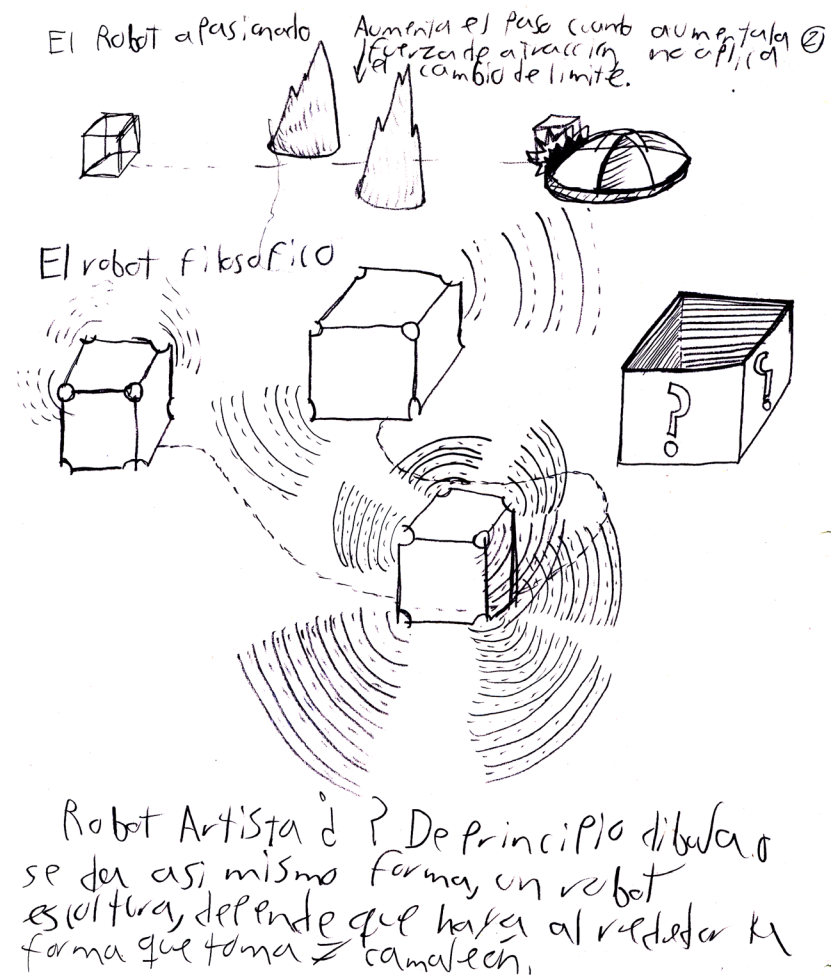 El Robot apasionado
Aumenta el paso cuando aumenta la ②
fuerza de atracción no aplica
el cambio de limite.
El robot filosofico
?
?
Robot Artista ¿ ? De principio dibuja o
se da asi mismo forma, un robot
escultura, depende que haya al rededor la
forma que toma ≠ camaleón.